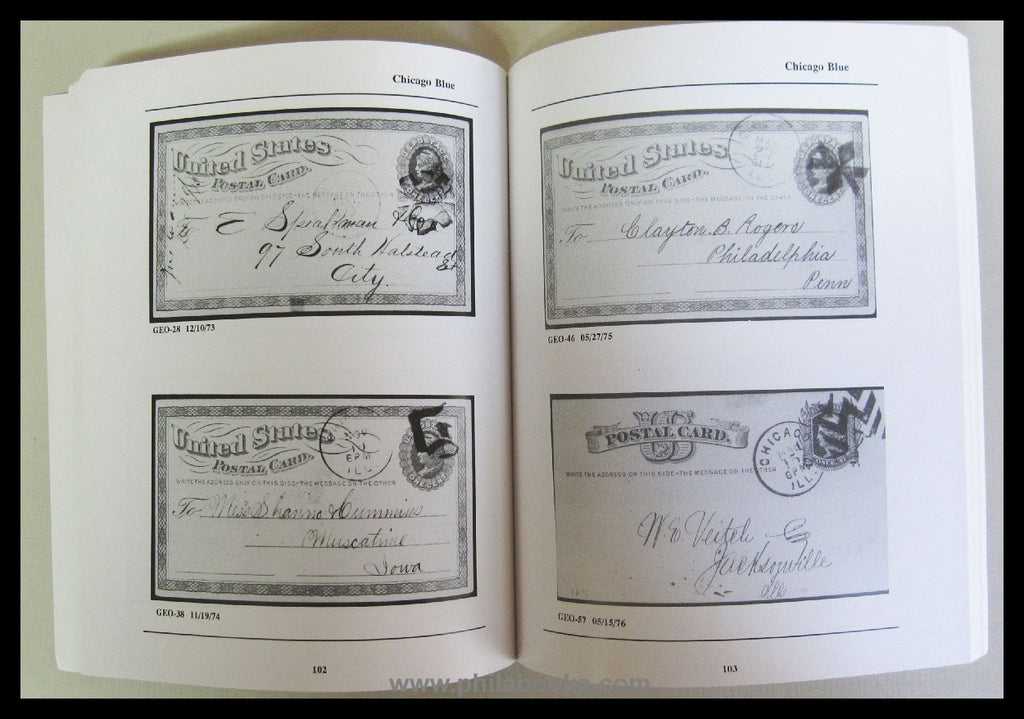 Chicago Blue
United States
POSTAL CARD.
WRITE THE ADDRESS ONLY ON THIS SIDE-THE MESSAGE ON THE OTHER
97 South Halstead St
City.
GEO-28 12/10/73
United States
POSTAL CARD.
WRITE THE ADDRESS ONLY ON THIS SIDE-THE MESSAGE ON THE OTHER
NOV
6PM
ILL
To Miss Shanno & Cummins
Muscatine
Iowa
GEO-38 11/19/74
102
Chicago Blue
United States
POSTAL CARD.
WRITE THE ADDRESS ONLY ON THIS SIDE-THE MESSAGE ON THE OTHER
To Clayton. B. Rogers
Philadelphia
Penn
GEO-46 05/27/75
POSTAL CARD.
WRITE THE ADDRESS ON THIS SIDE-THE MESSAGE ON THE OTHER
CHICAGO
6PM
ILL.
W. E. Veitch
Jacksonville
Ills
GEO-57 05/15/76
103
www.philabooks.com